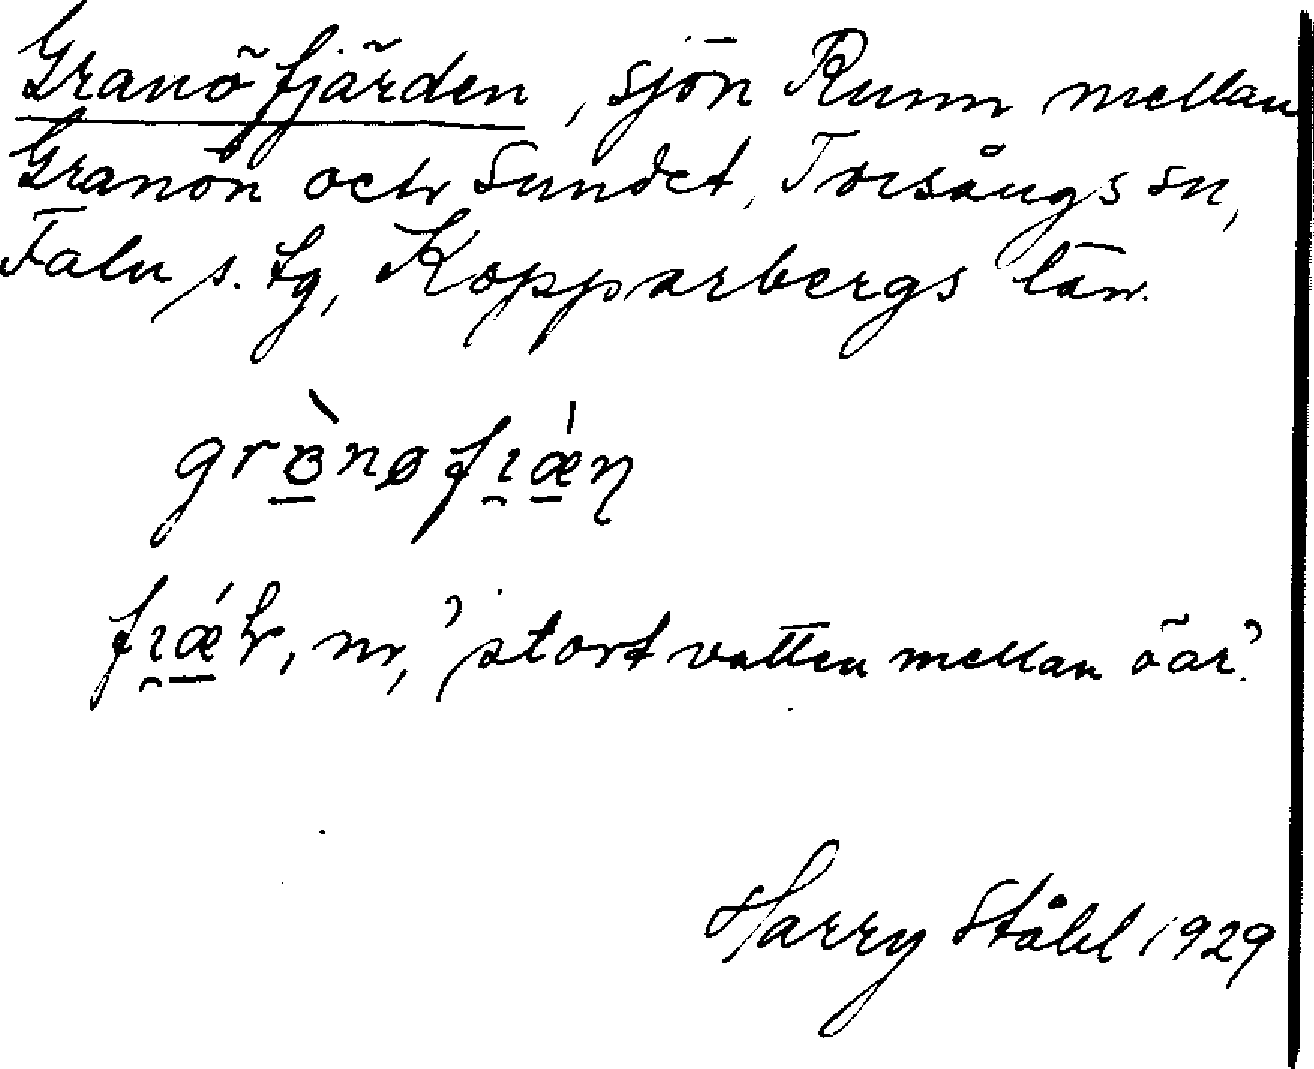 Granöfjärden, sjön Runn mellan
Granön och Sundet, Torsångs sn,
Falu s. tg, Kopparbergs län.
'stort vatten mellan öar'.
Harry Ståhl 1929